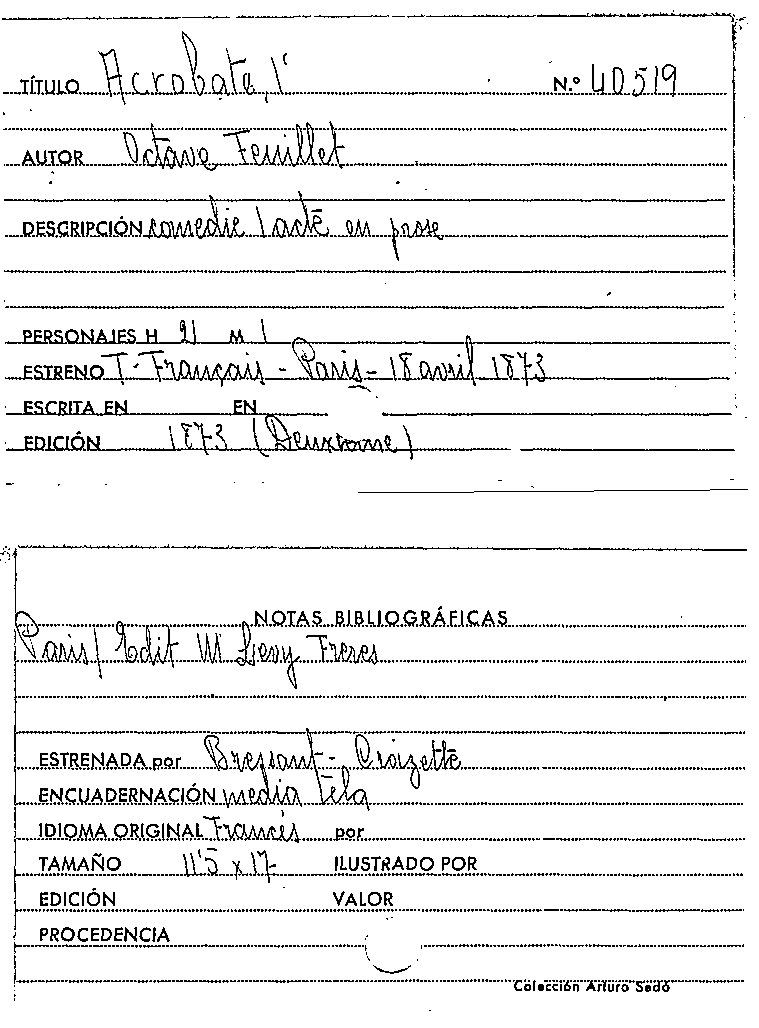 TÍTULO Acrobate, l' N.º 40519
AUTOR Octave Feuillet
DESCRIPCIÓN comedie 1 acte en prose
PERSONAJES H 2 M 1
ESTRENO T. Français - Paris - 18 avril 1873
ESCRITA EN EN
EDICIÓN 1873
NOTAS BIBLIOGRÁFICAS
Paris / Edit M Levy Freres
ESTRENADA por Bressant - Croizette
ENCUADERNACIÓN media tela
IDIOMA ORIGINAL Francés por
TAMAÑO 11'5 x 17 ILUSTRADO POR
EDICIÓN VALOR
PROCEDENCIA
Colección Arturo Sedó